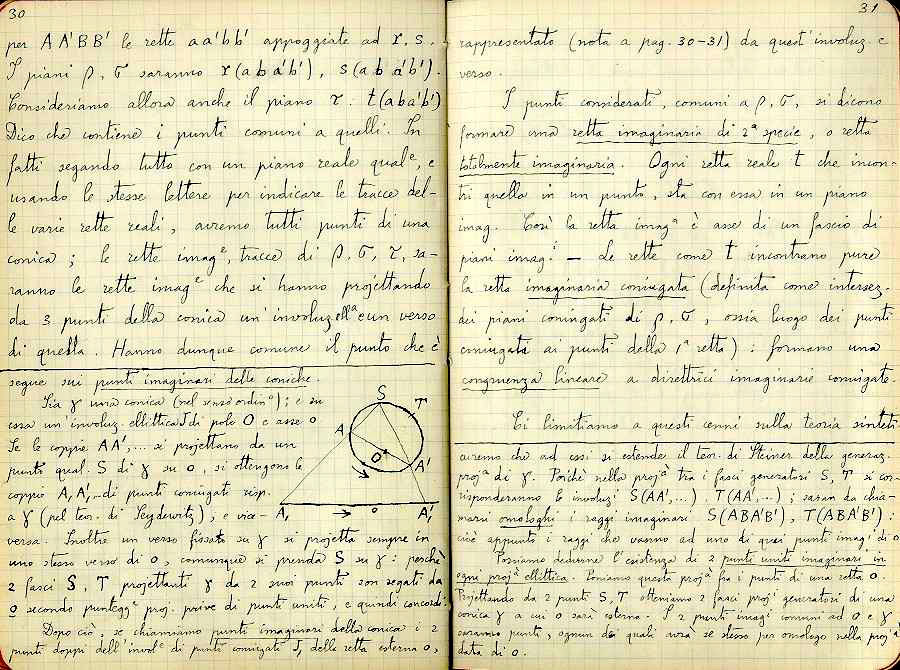 30
per AA'BB' le rette aa'bb' appoggiate ad r, s.
I piani ρ, σ saranno r(aba'b'), s(aba'b').
Consideriamo allora anche il piano τ. t(aba'b')
Dico che contiene i punti comuni a quelli. In
fatti segando tutto con un piano reale qual^e, e
usando le stesse lettere per indicare le tracce del-
le varie rette reali, avremo tutti punti di una
conica; le rette imag^e, tracce di ρ, σ, τ, sa-
ranno le rette imag^e che si hanno projettando
da 3 punti della conica un'involuz. ell^a e un verso
di quella. Hanno dunque comune il punto che è
segue sui punti imaginari delle coniche.
Sia γ una conica (nel senso ordin^o); e su
essa un'involuz. ellittica J di polo O e asse o
Se le coppie AA',... si projettano da un
punto qual. S di γ su o, si ottengono le
coppie A₁A₁'... di punti coniugati risp.
a γ (pel teor. di Seydewitz), e vice-
versa. Inoltre un verso fissato su γ si projetta sempre in
uno stesso verso di o, comunque si prenda S su γ: perchè
2 fasci S, T projettanti γ da 2 suoi punti son segati da
o secondo punteggi^e proj. prive di punti uniti, e quindi concordi.
Dopo ciò, se chiamiamo punti imaginari della conica i 2
punti doppi dell'invol^e di punti coniugati J₁ della retta esterna o,
S
T
A
O
A'
A₁
o
A₁'
31
rappresentato (nota a pag. 30-31) da quest'involuz. e
verso.
I punti considerati, comuni a ρ, σ, si dicono
formare una retta imaginaria di 2ª specie, o retta
totalmente imaginaria. Ogni retta reale t che incon-
tri quella in un punto, sta con essa in un piano
imag. Così la retta imag^a è asse di un fascio di
piani imag^i — Le rette come t incontrano pure
la retta imaginaria coniugata (definita come intersez.
dei piani coniugati di ρ, σ, ossia luogo dei punti
coniugati ai punti della 1ª retta): formano una
congruenza lineare a direttrici imaginarie coniugate.
Ci limitiamo a questi cenni sulla teoria sinteti
avremo che ad essi si estende il teor. di Steiner della generaz.
proj^a di γ. Poichè nella proj^a tra i fasci generatori S, T si cor-
risponderanno le involuz^i S(AA',...) T(AA',...); saran da chia-
marsi omologhi i raggi imaginari S(ABA'B'), T(ABA'B'):
cioè appunto i raggi che vanno ad uno di quei punti imag^i di o
Possiamo dedurne l'esistenza di 2 punti uniti imaginari in
ogni proj^a ellittica. Poniamo questa proj^a fra i punti di una retta o.
Projettando da 2 punti S, T otteniamo 2 fasci proj^i generatori di una
conica γ a cui o sarà esterna. I 2 punti imag^i comuni ad o e γ
saranno punti, ognun dei quali avrà se stesso per omologo nella proj^a
data di o.